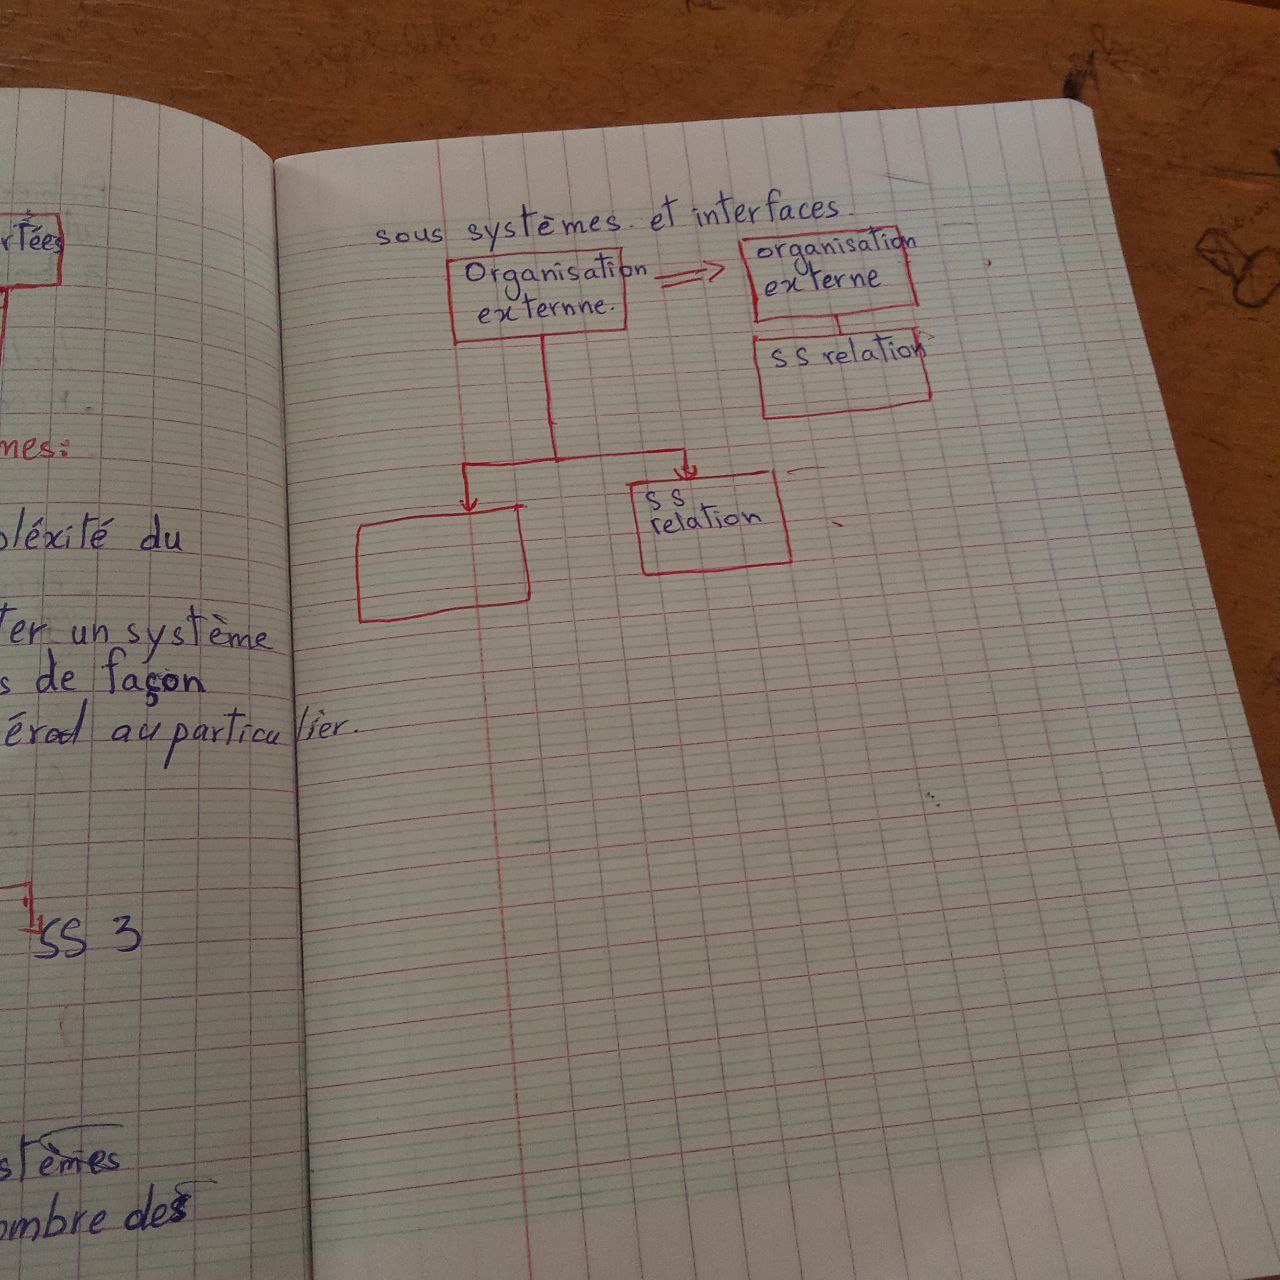 rtées
mes:
pléxité du
ter un système
s de façon
érad au particulier.
SS 3
stèmes
ombre des
sous systèmes. et interfaces.
Organisation
externne.
organisation
externe
SS relation
SS
relation